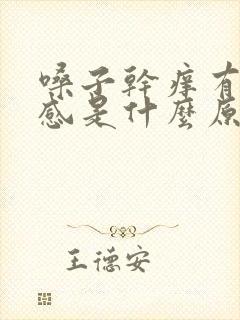 嗓子幹癢有
感是什麼原
王德安